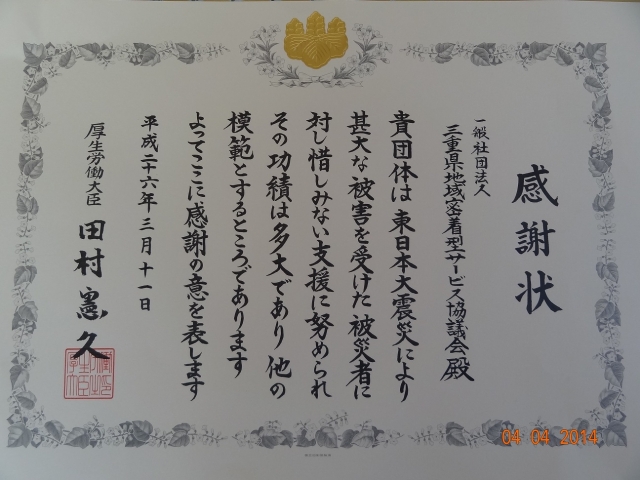 感謝状
一般社団法人
三重県地域密着型サービス協議会 殿
貴団体は東日本大震災により
甚大な被害を受けた被災者に
対し惜しみない支援に努められ
その功績は多大であり他の
模範とするところであります
よってここに感謝の意を表します
平成二十六年三月十一日
厚生労働大臣 田村憲久
04 04 2014